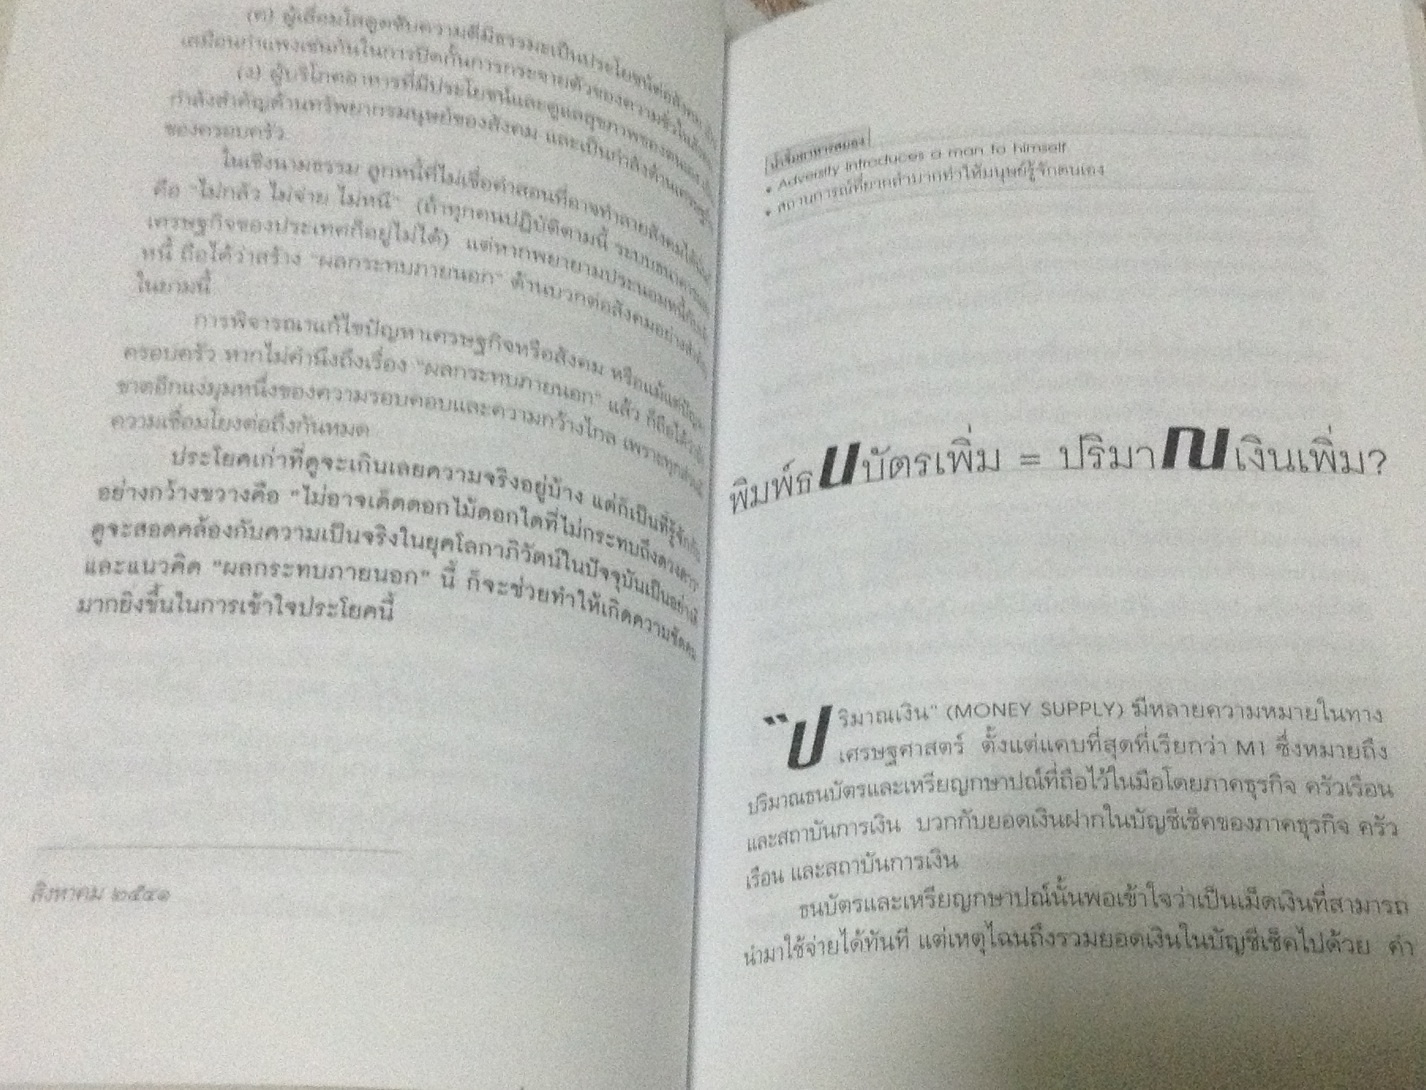 (ค) ผู้เลื่อมใสดูดซับความดีมีธรรมะเป็นประโยชน์ต่อสังคม
เสมือนกำแพงเช่นกันในการปิดกั้นการกระจายตัวของความชั่วในสังคม
(ง) ผู้บริโภคอาหารที่มีประโยชน์และดูแลสุขภาพของตนเอง
กำลังสำคัญด้านทรัพยากรมนุษย์ของสังคม และเป็นกำลังด้านเศรษฐกิจ
ของครอบครัว
ในเชิงนามธรรม ลูกหนี้ที่ไม่เชื่อคำสอนที่อาจทำลายสังคมได้
คือ "ไม่กลัว ไม่จ่าย ไม่หนี" (ถ้าทุกคนปฏิบัติตามนี้ ระบบธนาคาร
เศรษฐกิจของประเทศก็อยู่ไม่ได้) แต่หากพยายามประนอมหนี้
หนี้ ถือได้ว่าสร้าง "ผลกระทบภายนอก" ด้านบวกต่อสังคมอย่างสำคัญ
ในยามนี้
การพิจารณาแก้ไขปัญหาเศรษฐกิจหรือสังคม หรือแม้แต่ปัญหา
ครอบครัว หากไม่คำนึงถึงเรื่อง "ผลกระทบภายนอก" แล้ว ก็ถือได้ว่า
ขาดอีกแง่มุมหนึ่งของความรอบคอบและความกว้างไกล เพราะทุกสิ่งมี
ความเชื่อมโยงต่อถึงกันหมด
ประโยคเก่าที่ดูจะเกินเลยความจริงอยู่บ้าง แต่ก็เป็นที่รู้จักกัน
อย่างกว้างขวางคือ "ไม่อาจเด็ดดอกไม้ดอกใดที่ไม่กระทบถึงดวงดาว"
ดูจะสอดคล้องกับความเป็นจริงในยุคโลกาภิวัตน์ในปัจจุบันเป็นอย่างดี
และแนวคิด "ผลกระทบภายนอก" นี้ ก็จะช่วยทำให้เกิดความชัดเจน
มากยิ่งขึ้นในการเข้าใจประโยคนี้
สิงหาคม ๒๕๔๑
น้ำจิ้มอาหารสมอง
• Adversity introduces a man to himself
• สถานการณ์ที่ยากลำบากทำให้มนุษย์รู้จักตนเอง
พิมพ์ธนบัตรเพิ่ม = ปริมาณเงินเพิ่ม?
"ปริมาณเงิน" (MONEY SUPPLY) มีหลายความหมายในทาง
เศรษฐศาสตร์ ตั้งแต่แคบที่สุดที่เรียกว่า M1 ซึ่งหมายถึง
ปริมาณธนบัตรและเหรียญกษาปณ์ที่ถือไว้ในมือโดยภาคธุรกิจ ครัวเรือน
และสถาบันการเงิน บวกกับยอดเงินฝากในบัญชีเช็คของภาคธุรกิจ ครัว
เรือน และสถาบันการเงิน
ธนบัตรและเหรียญกษาปณ์นั้นพอเข้าใจว่าเป็นเม็ดเงินที่สามารถ
นำมาใช้จ่ายได้ทันที แต่เหตุไฉนถึงรวมยอดเงินในบัญชีเช็คไปด้วย คำ